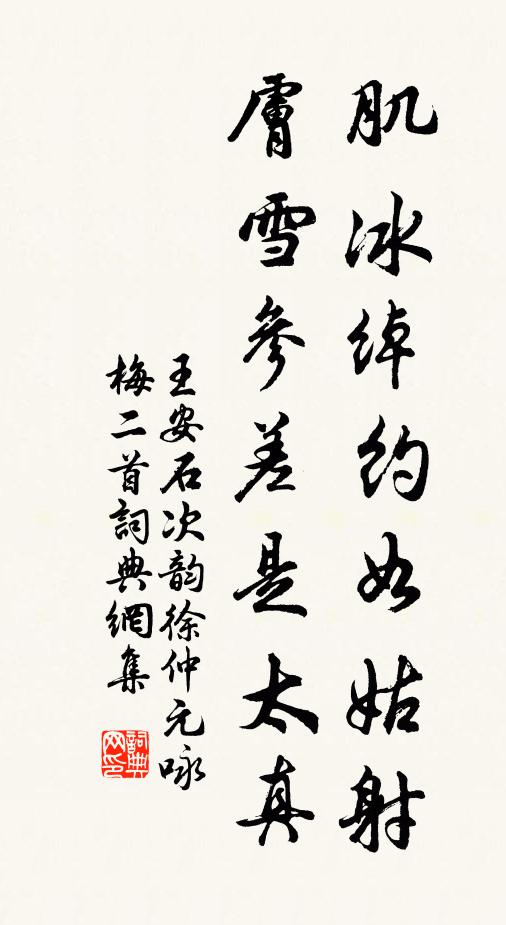 肌冰绰約如姑射
膚雪參差是太真
王安石次韵徐仲元咏
梅二首詞典網集
詞典
网印